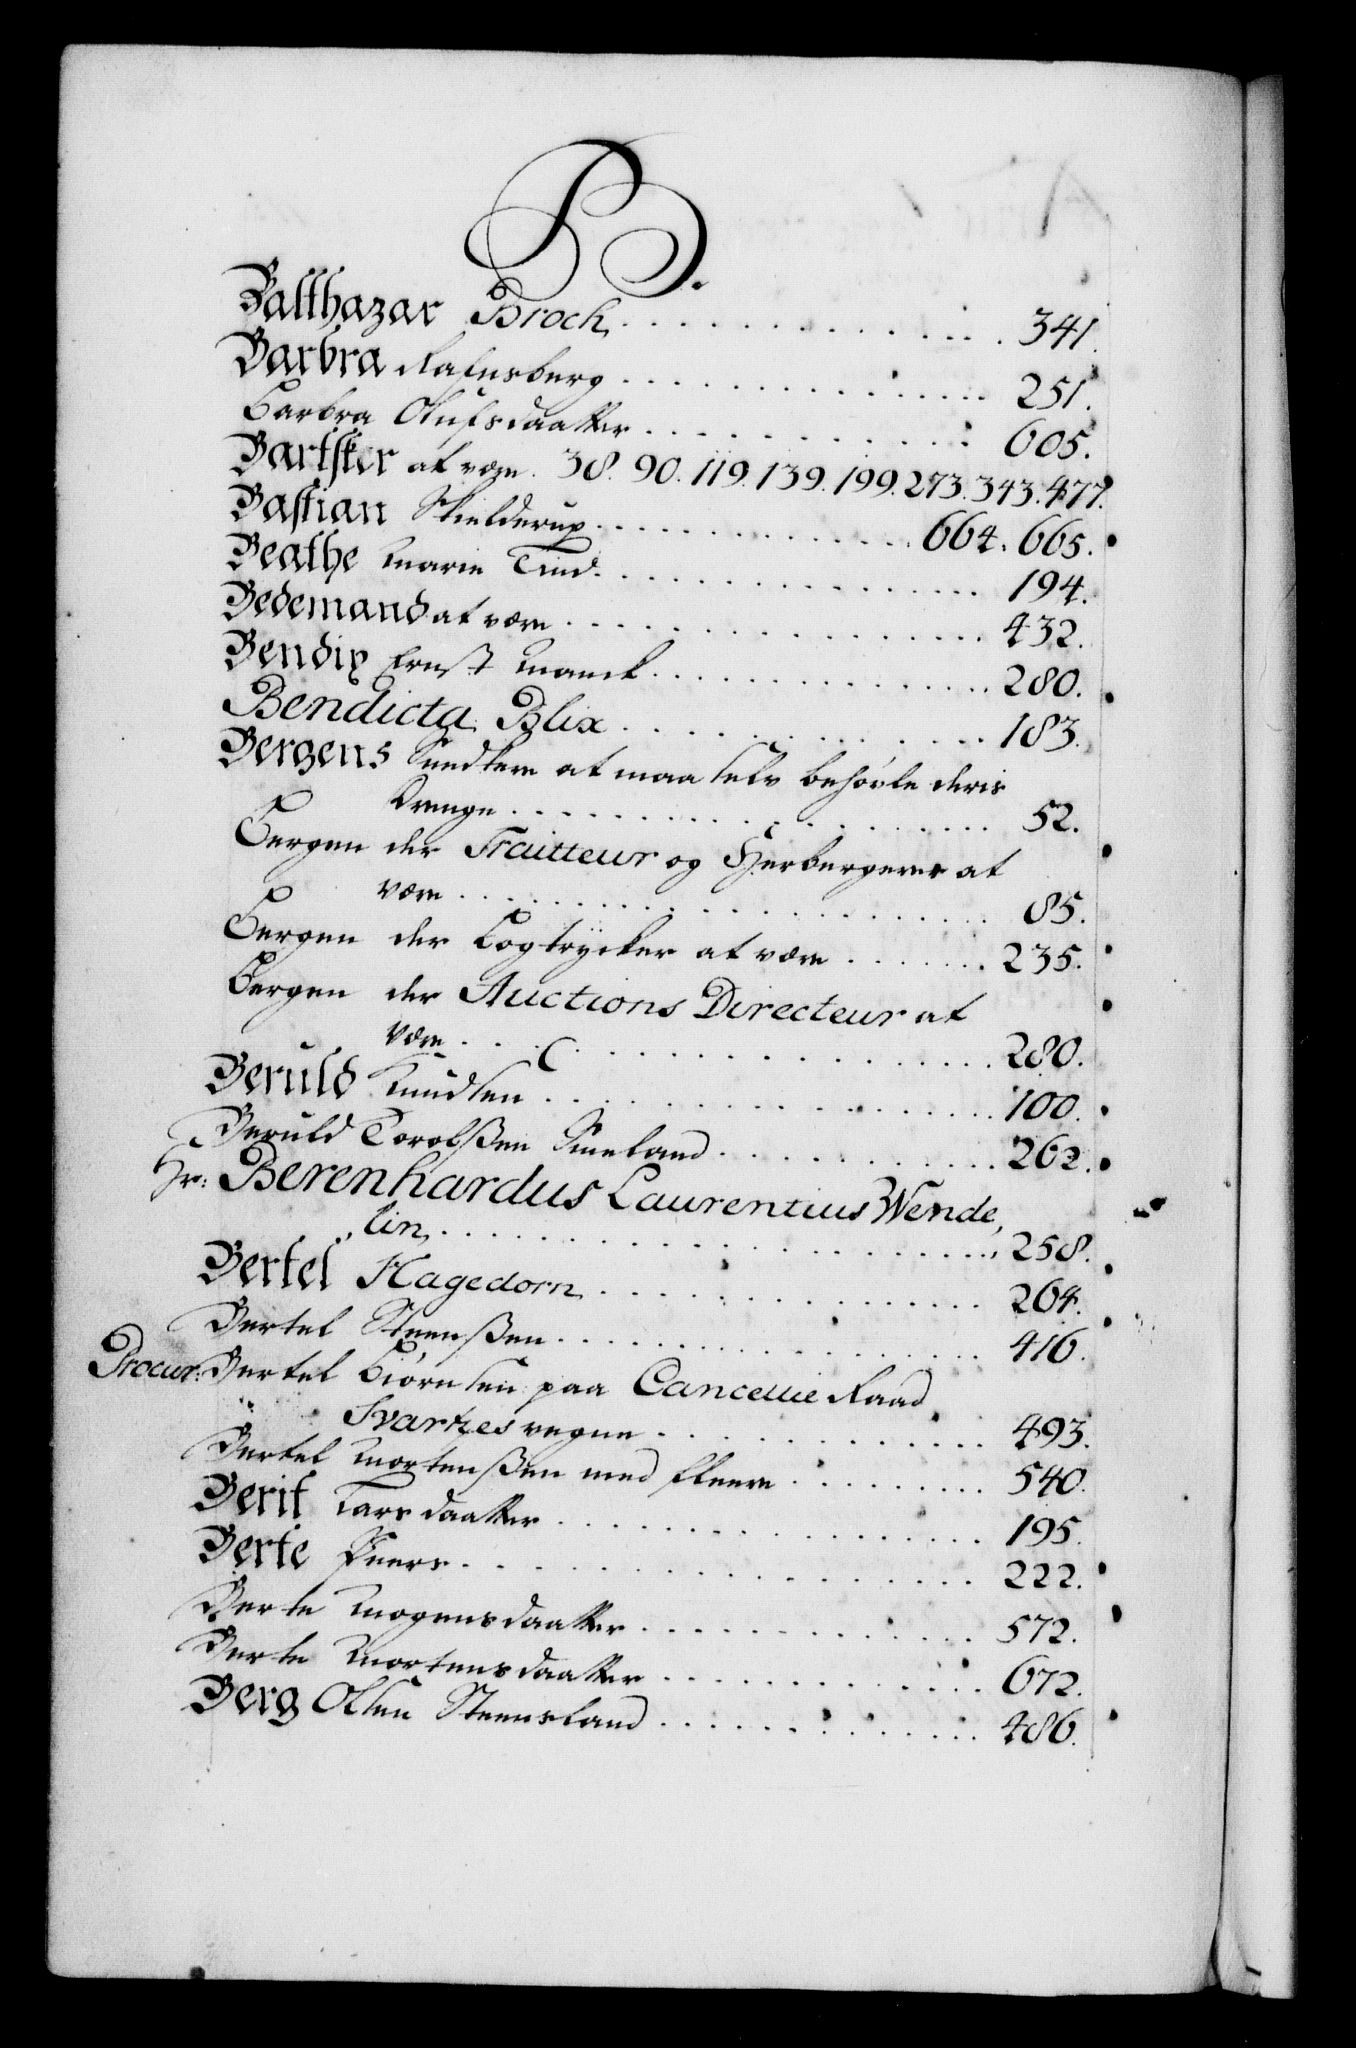 B.
Balthazar Broch. . . . . . . . . . . . . . 341.
Barbra Rafnsberg . . . . . . . . . . . . . 251.
Barbra Olufsdaatter . . . . . . . . . . . . 605.
Bartsker at være. 38. 90. 119. 139. 199. 273. 343. 477.
Bastian Skielderup . . . . . . . . . . . 664. 665.
Beathe Marie Tind . . . . . . . . . . . . . 194.
Bedemand at være . . . . . . . . . . . . . 432.
Bendix Ernst Manck . . . . . . . . . . . . 280.
Bendicta Blix . . . . . . . . . . . . . 183.
Bergens at maa selv behøvle deris
Drenge . . . . . . . . . . . . . . . . 52.
Bergen der Traitteur og Herbergerer at
være . . . . . . . . . . . . . . . . . 85.
Bergen der Bogtrycker at være . . . . . . . 235.
Bergen der Auctions Directeur at
være . . . . . . . . . . . . . . . . . 280.
Beruld Knudsen . . . . . . . . . . . . . . 100.
Beruld . . . . . . . . . . . . 262.
Hr: Berenhardus Laurentius Wende,
lin . . . . . . . . . . . . . . . . . 258.
Bertel Hagedorn . . . . . . . . . . . . . 264.
Bertel Steenßen . . . . . . . . . . . . . 416.
Procur: Bertel Biørnsen paa Cancellie Raad
Svartzes vegne . . . . . . . . . . . . 493.
Bertel Mortenßen med fleere . . . . . . . . . 540.
Berit Larsdaatter . . . . . . . . . . . . . 195.
Berte Peers . . . . . . . . . . . . . . . 222.
Berte Mogensdaatter . . . . . . . . . . . . 572.
Berte Mortensdaatter . . . . . . . . . . . . 672.
Berg Olsen Steensland . . . . . . . . . . . . 486.